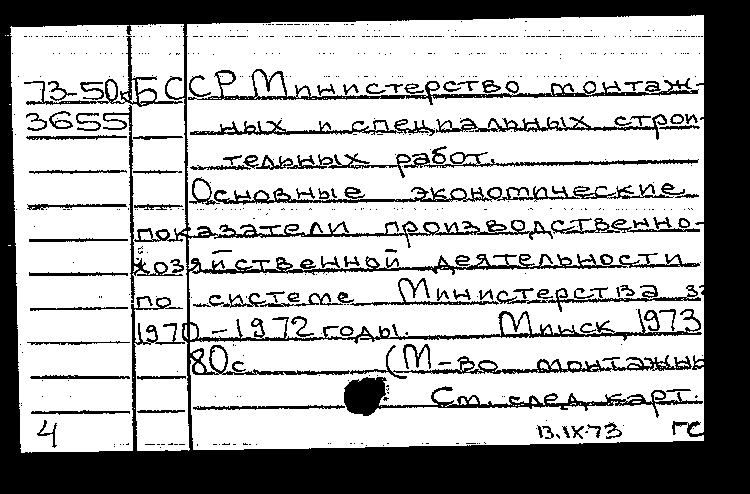 73-50к БССР Министерство монтаж-
3655 ных и специальных строи
тельных работ.
Основные экономические
показатели производственно-
хозяйственной деятельности
по системе Министерства за
1970-1972 годы. Минск, 1973
80с. (М-во монтажны
См. след. карт.
4 13.IX.73 ГС